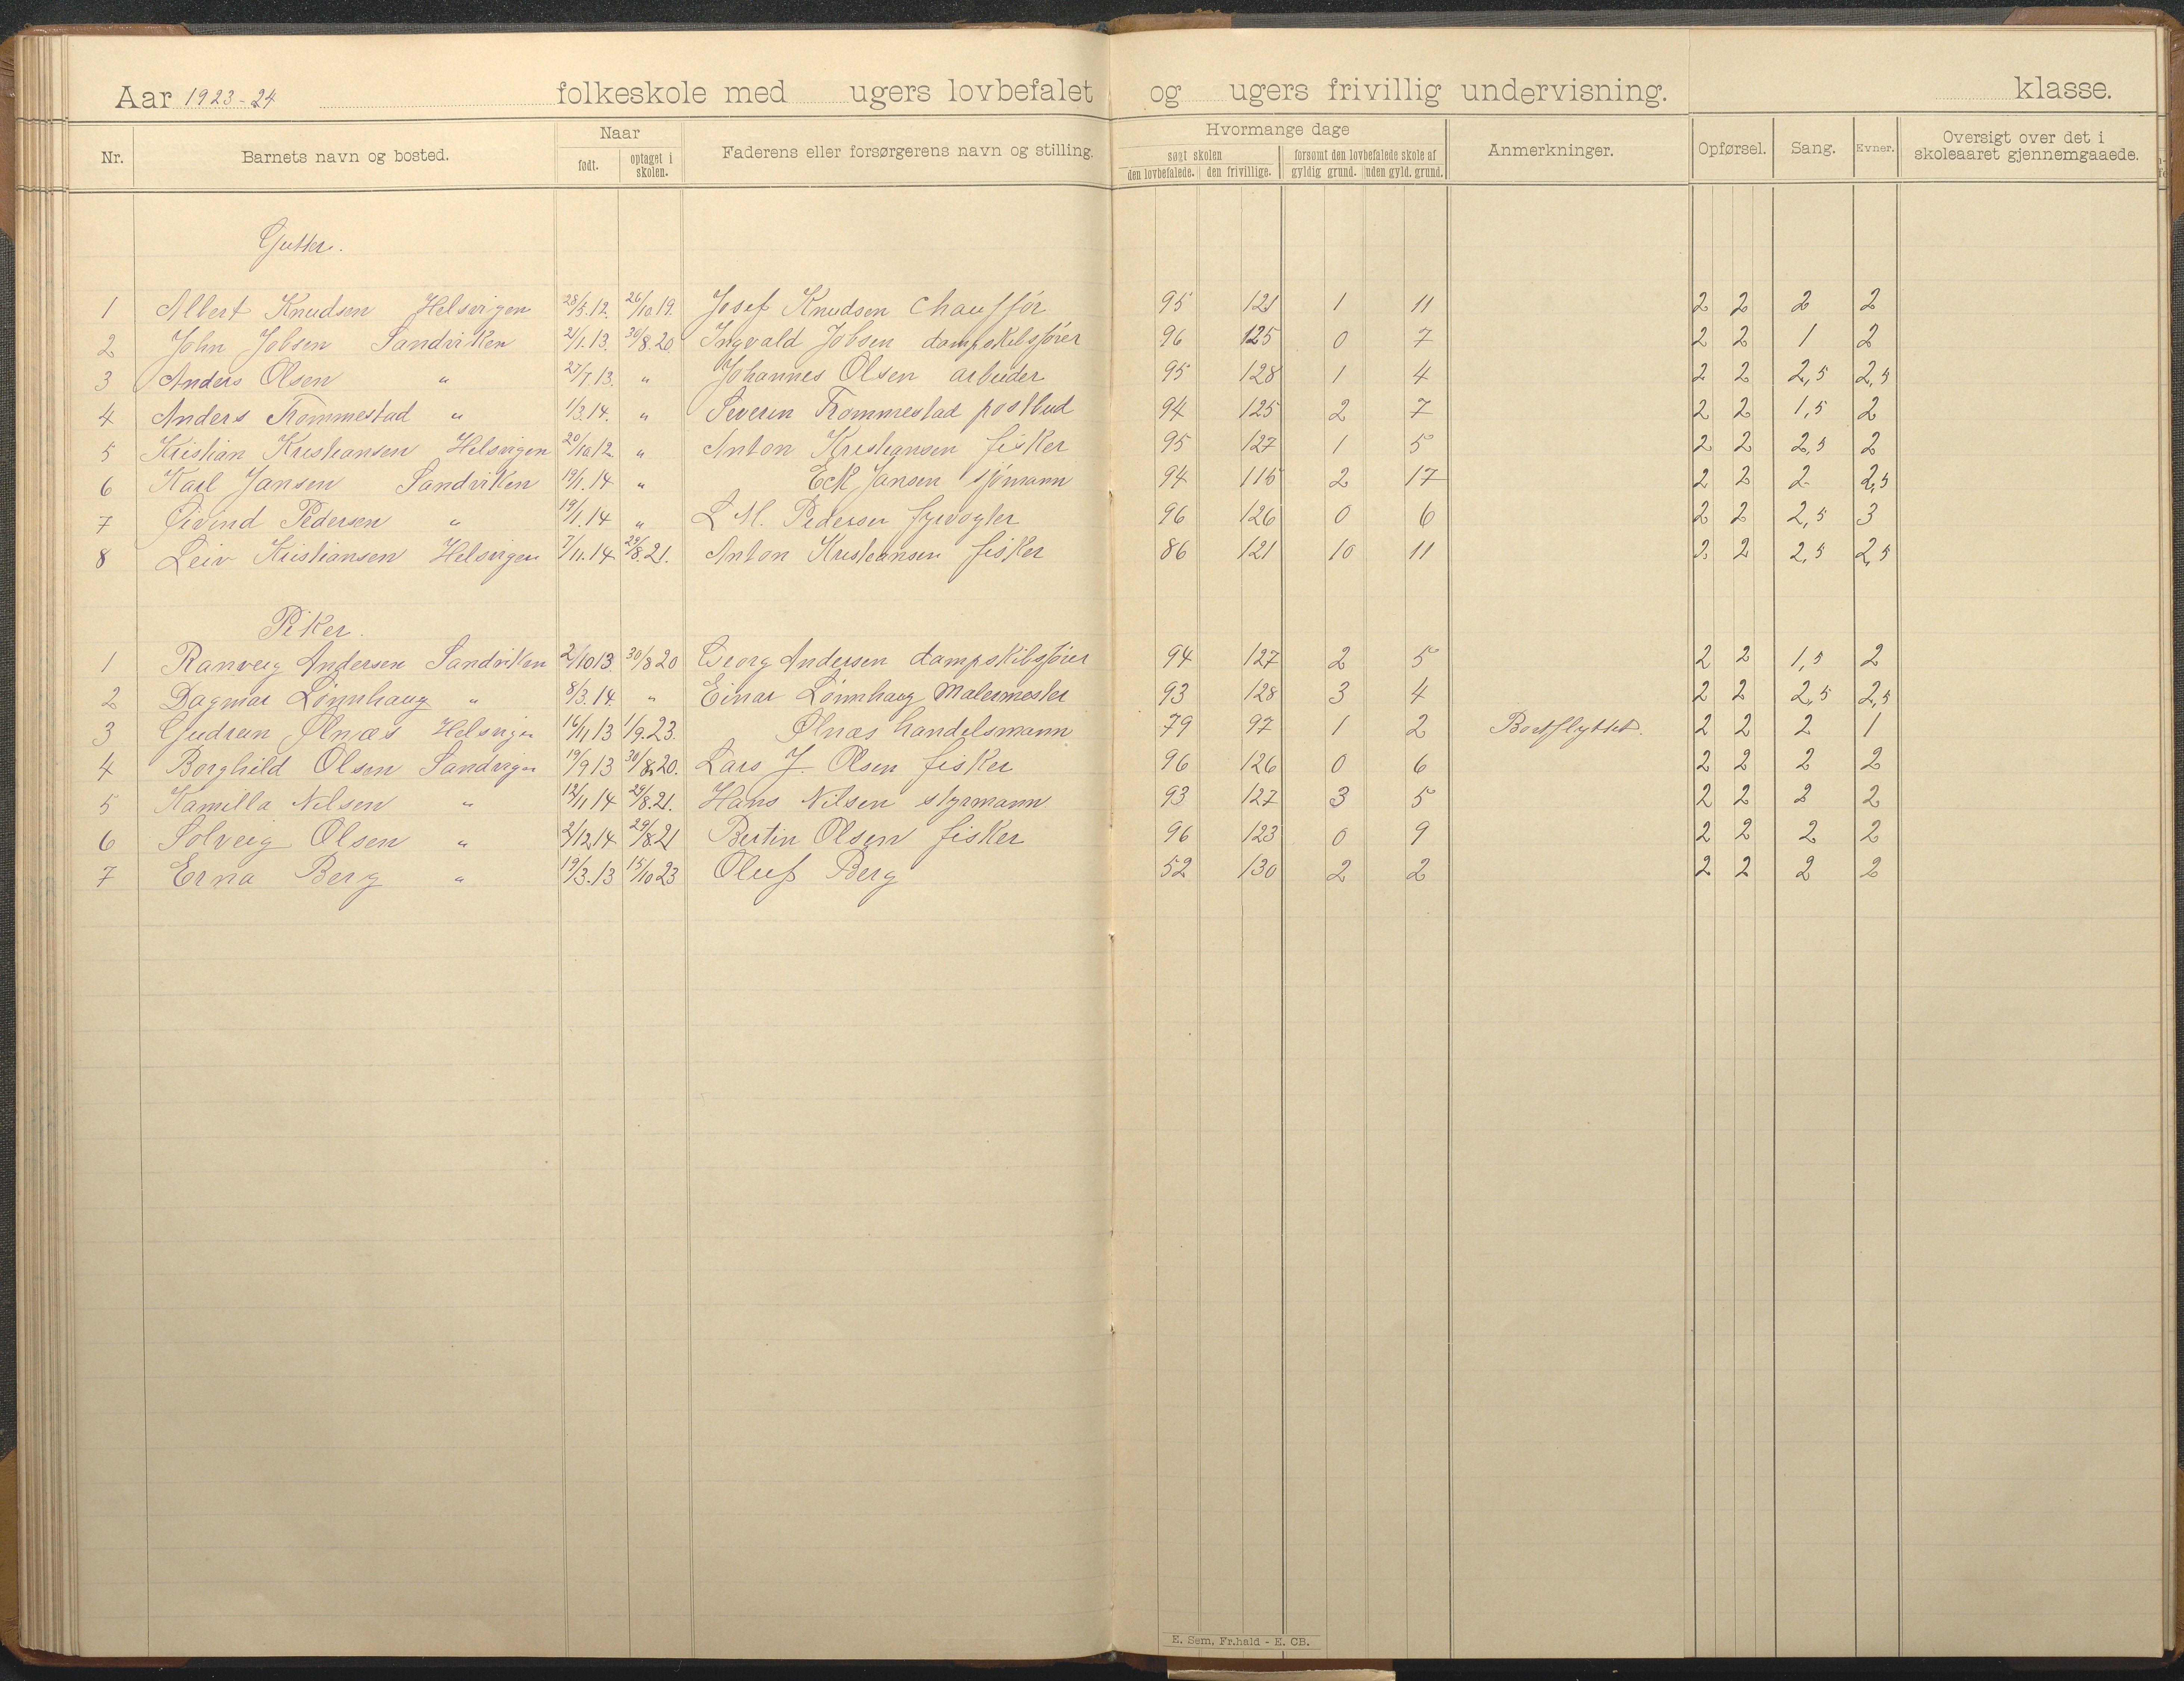 Aar 1923-24 folkeskole med ugers lovbefalet og ugers frivillig undervisning. klasse.
Nr. Barnets navn og bosted. Naar født. optaget i skolen. Faderens eller forsørgerens navn og stilling. Hvormange dage søgt skolen den lovbefalede. den frivillige. forsømt den lovbefalede skole af gyldig grund. uden gyld. grund. Anmerkninger. Opførsel. Sang. Evner. Oversigt over det i skoleaaret gjennemgaaede.
Gutter.
1 Albert Knudsen Helsvigen 28/5.12. 26/10.19. Josef Knudsen Chauffør 95 121 1 11 2 2 2 2
2 John Jobsen Sandviken 21/1.13. 30/8.20. Ingvald Jobsen dampskibsfører 96 125 0 7 2 2 1 2
3 Anders Olsen " 27/7.13. " Johannes Olsen arbeider 95 128 1 4 2 2 2,5 2,5
4 Anders Trommestad " 1/3.14. " Severin Trommestad postbud 94 125 2 7 2 2 1,5 2
5 Kristian Kristiansen Helsvigen 20/10.12. " Anton Kristiansen fisker 95 127 1 5 2 2 2,5 2
6 Karl Jansen Sandviken 19/1.14 " Jansen sjømann 94 115 2 17 2 2 2 2,5
7 Øivind Pedersen " 19/1.14 " L M. Pedersen fyrvogter 96 126 0 6 2 2 2,5 3
8 Leiv Kristiansen Helsvigen 7/11.14 29/8.21. Anton Kristiansen fisker 86 121 10 11 2 2 2,5 2,5
Piker.
1 Ranveig Andersen Sandviken 2/10 13 30/8 20 Georg Andersen dampskibsfører 94 127 2 5 2 2 1,5 2
2 Dagmar Lønnhaug " 8/3.14. " Einar Lønnhaug Malermester 93 128 3 4 2 2 2,5 2,5
3 Gudrun Ølnæs Helsvigen 16/11 13 1/9.23. Ølnæs handelsmann 79 97 1 2 Bortflyttet. 2 2 2 1
4 Borghild Olsen Sandvigen 19/9 13 30/8.20. Lars J. Olsen fisker 96 126 0 6 2 2 2 2
5 Kamilla Nilsen " 12/11 14 29/8.21. Hans Nilsen styrmann 93 127 3 5 2 2 2 2
6 Solveig Olsen " 2/12.14 29/8.21 Bertin Olsen fisker 96 123 0 9 2 2 2 2
7 Erna Berg " 19/3.13 15/10 23 Oluf Berg 52 130 2 2 2 2 2 2
E. Sem, Fr.hald - E. CB.